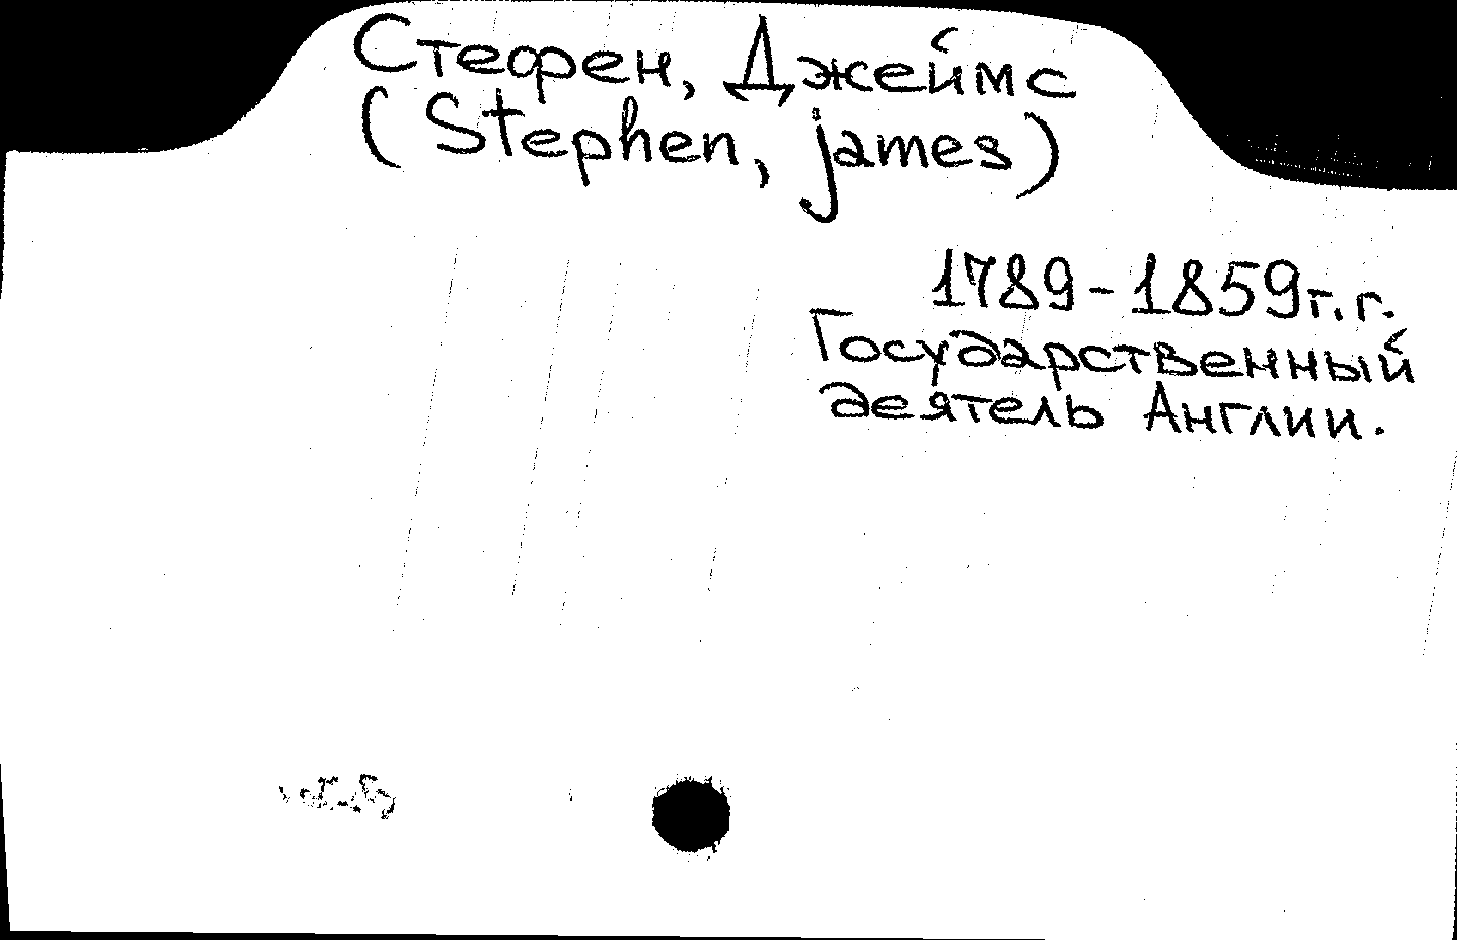 Стефен, Джеймс
(Stephen, james)
1789-1859г.г.
Государственный
деятель Англии.